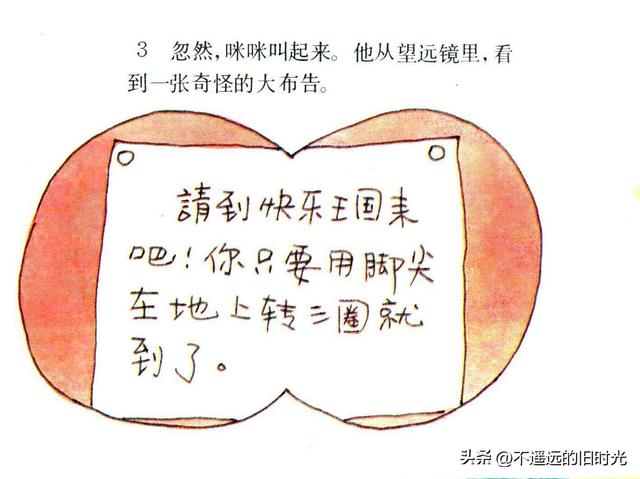 3 忽然，咪咪叫起来。他从望远镜里，看
到一张奇怪的大布告。
請到快乐王国来
吧！你只要用脚尖
在地上转三圈就
到了。
头条 @不遥远的旧时光